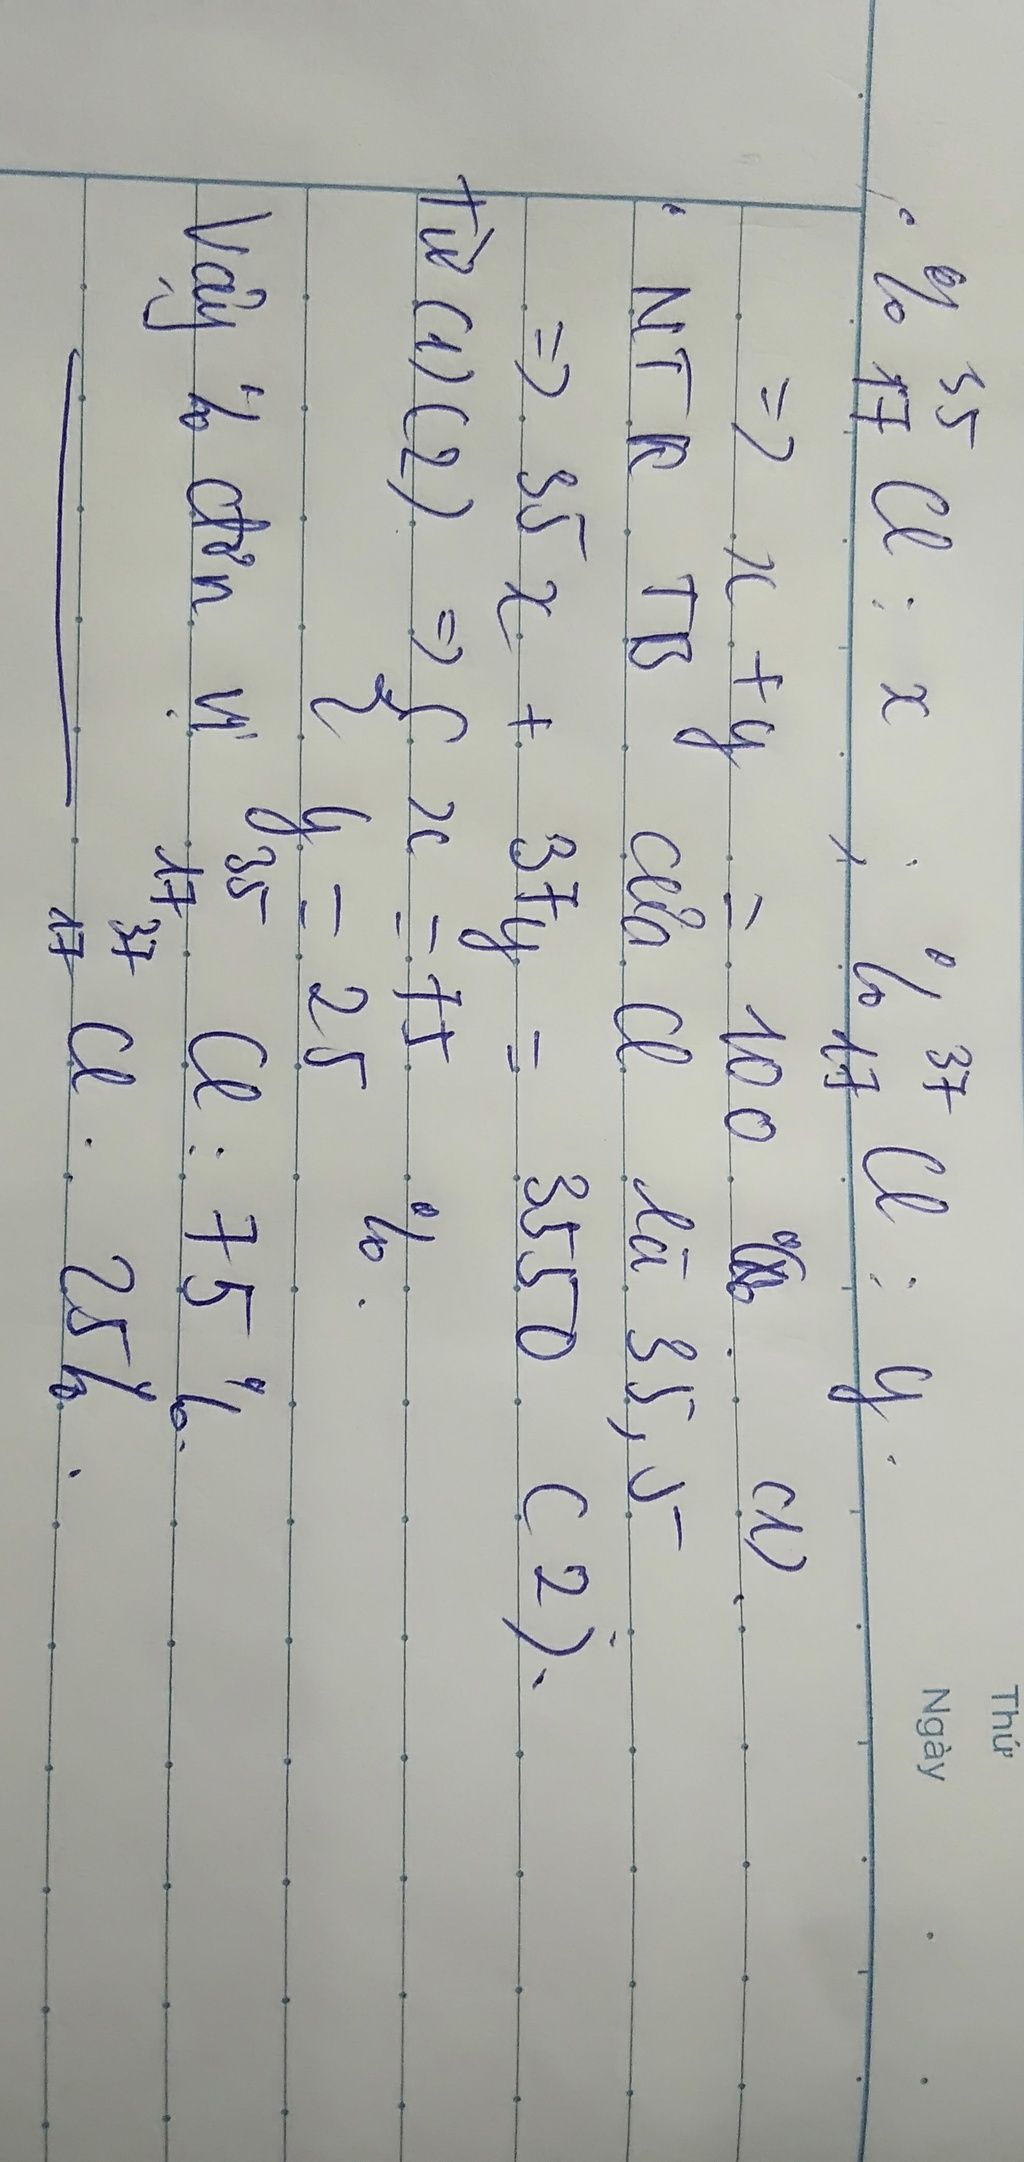 Thứ
Ngày
% ³⁵₁₇Cl : x ; % ³⁷₁₇Cl : y.
=> x + y = 100 %. (1)
NTK TB của Cl là 35,5
=> 35x + 37y = 3550 (2).
Từ (1)(2) => { x = 75 %.
{ y = 25
Vậy % đơn vị ³⁵₁₇Cl : 75%.
³⁷₁₇Cl : 25%.